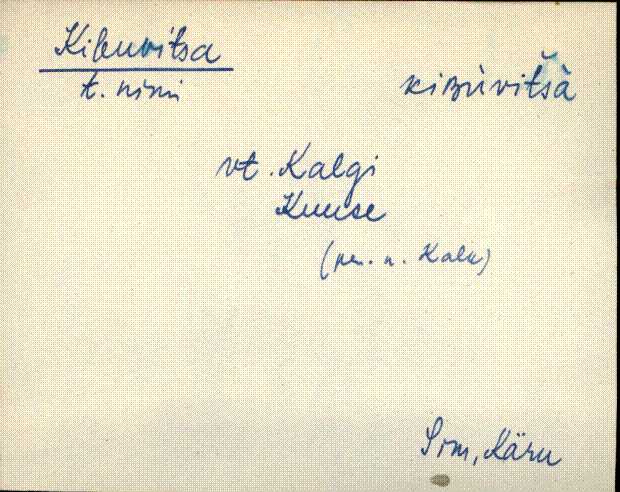 Kibuvitsa
t. nimi
kiʙùvitšà
vt. Kalgi
Kuuse
(per. n. Kalk)
Sim, Käru